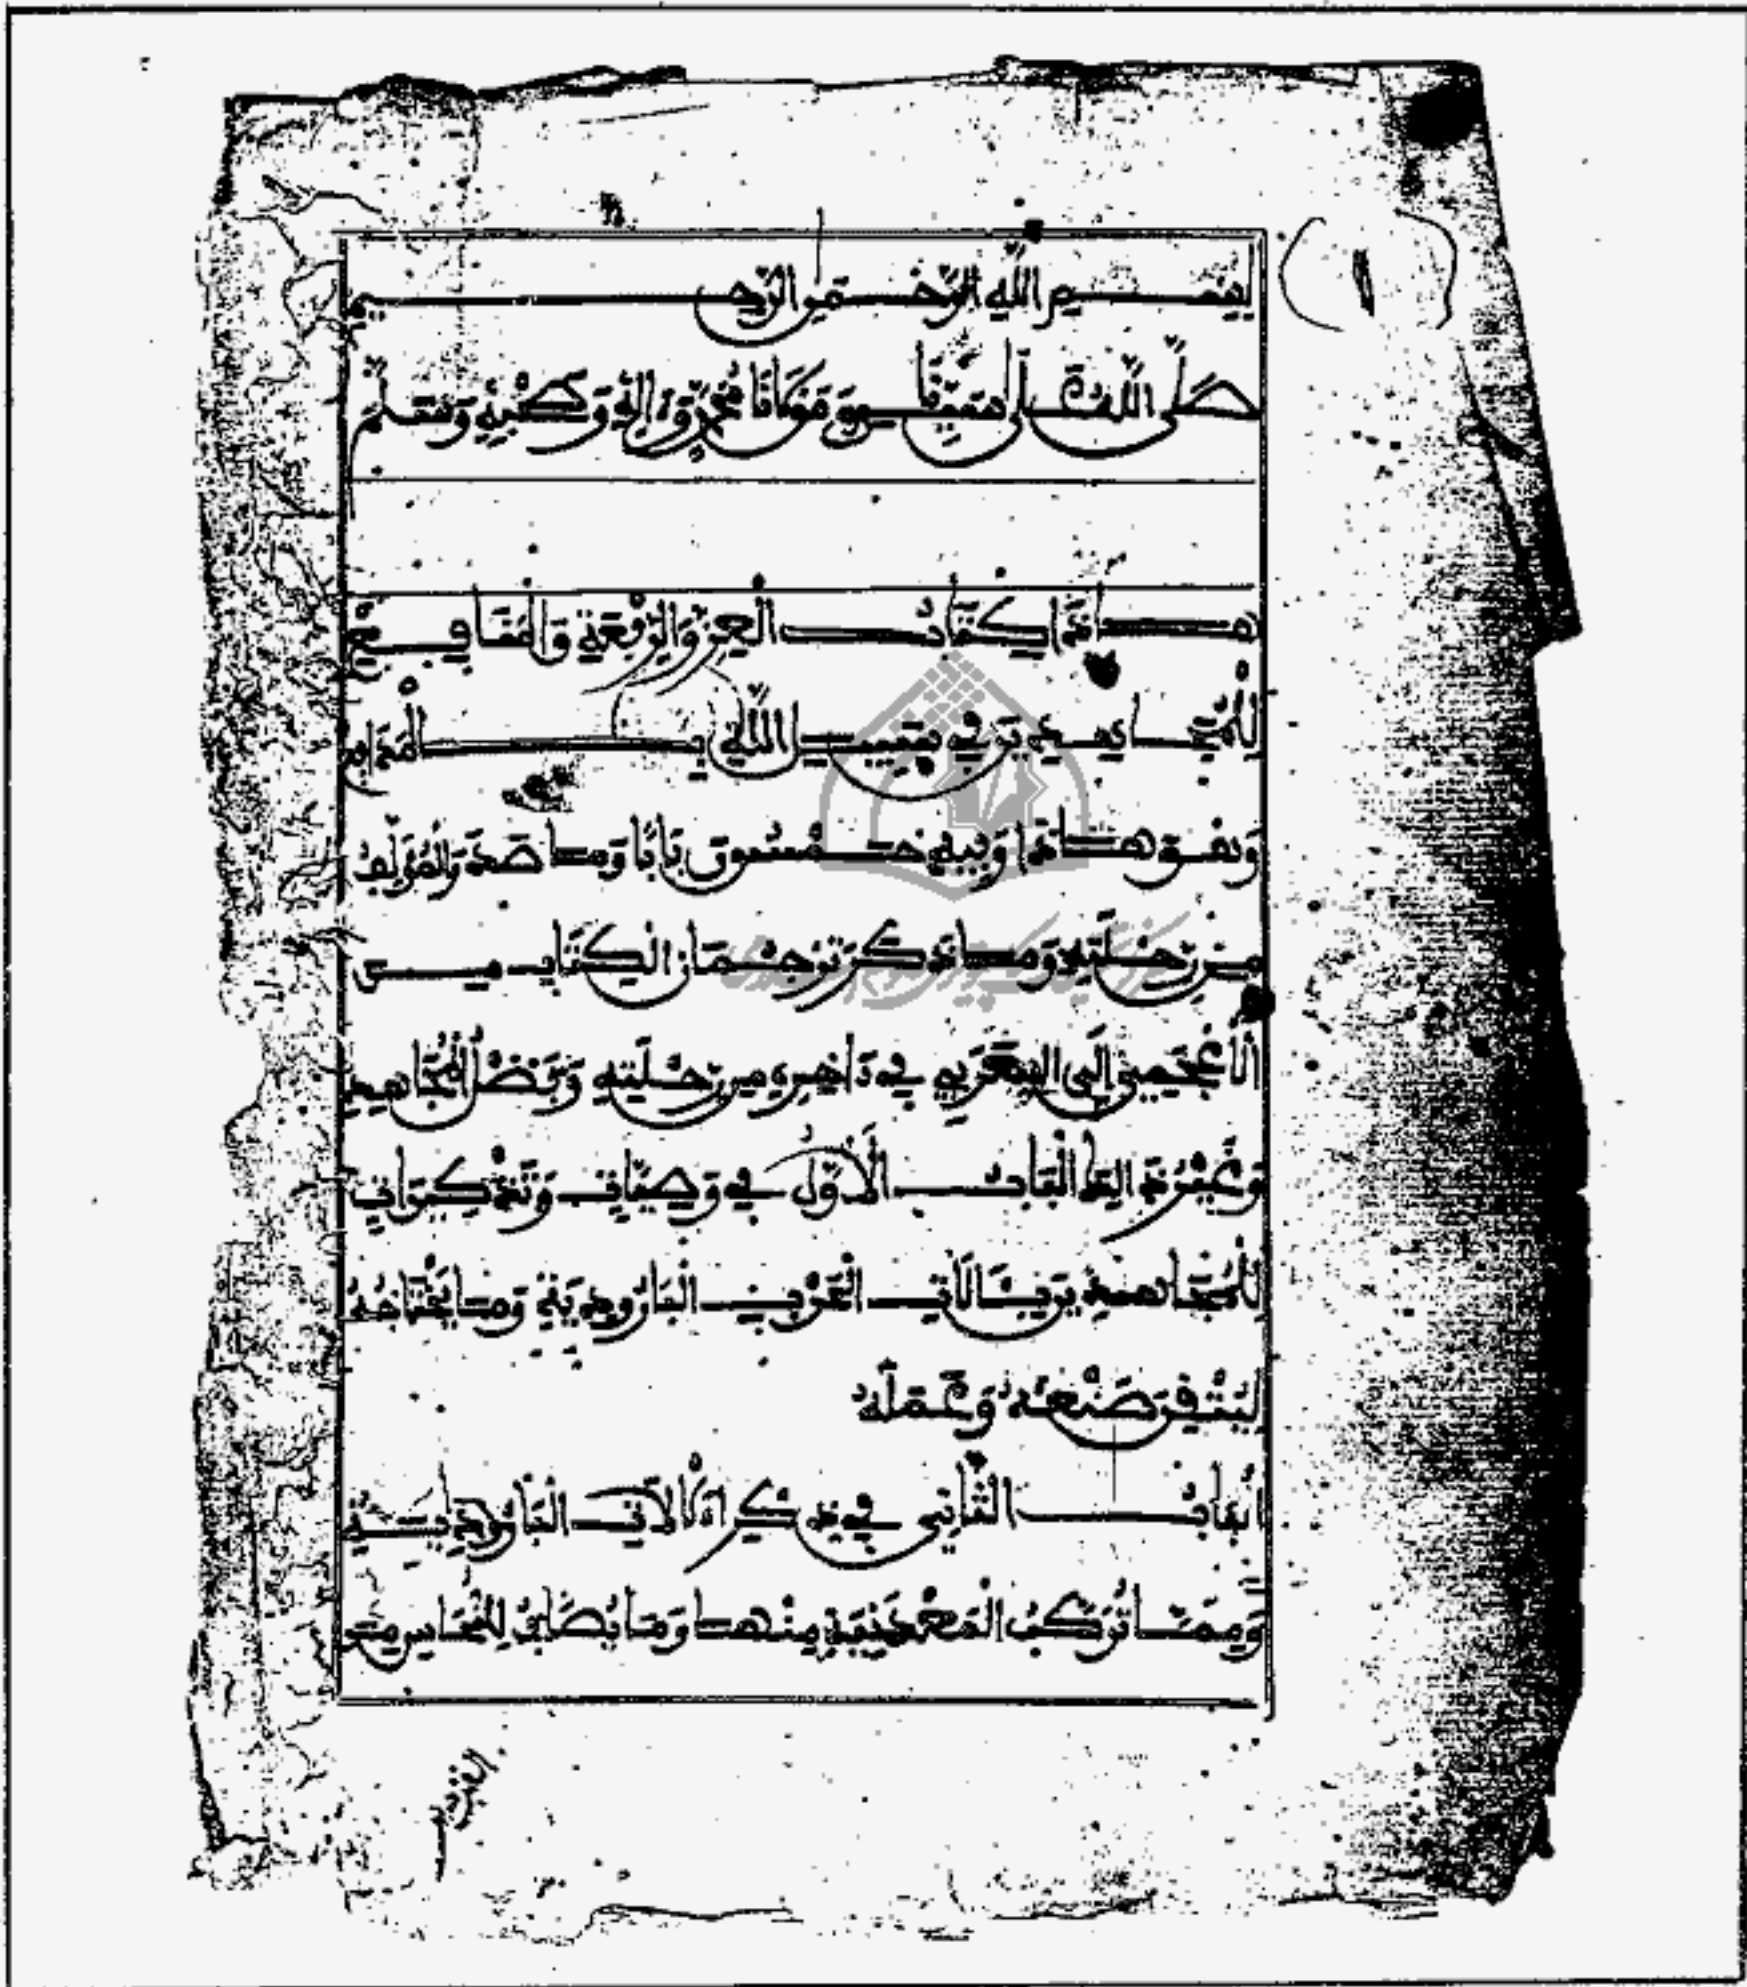 بِسْمِ اللَّهِ الرَّحْمَنِ الرَّحِيمِ
صَلَّى اللَّهُ عَلَى سَيِّدِنَا وَمَوْلَانَا مُحَمَّدٍ وَءَالِهِ وَصَحْبِهِ وَسَلَّمَ
هذا كِتَابُ الْعِزِّ وَالرِّفْعَةِ وَالْمَنَافِعِ
لِلْمُجَاهِدِينَ فِي سَبِيلِ اللَّهِ بِـالْمَدَافِعِ
وَفِي هذا وَبِيهِ خمسون بَابًا وَما صدَرَ لِلْمُؤَلِّفِ
مِن رِحْلَتِهِ وَما ذكرَ تَرْجُمَان الْكِتَابِ مِن
الْأَعْجَمِيِّ إِلَى الْعَرَبِيِّ فِي ءَاخِرِهِ مِن رِحْلَتِهِ وَبَعْضِ الْمُجَاهِدِ
الْبَابُ الْأَوَّلُ فِي وَصِيَّاتٍ وَتَذْكِيرَاتٍ
لِلْمُجَاهِدِينَ بِآلَاتِ الْحَرْبِ الْبَارُودِيَّةِ وَما يَحْتَاجُهُ
لِيُتْقِنَ صَنْعَتَهُ وَعَمَلَهُ
الْبَابُ الثَّانِي فِي ذِكْرِ الْآلَاتِ الْبَارُودِيَّةِ
وَمِمَّا تُرَكَّبُ الْمَعْدَنِيَّةِ مِنْهَا وَمَا يُضَافُ لِلنُّحَاسِ مِن
القزدير
١